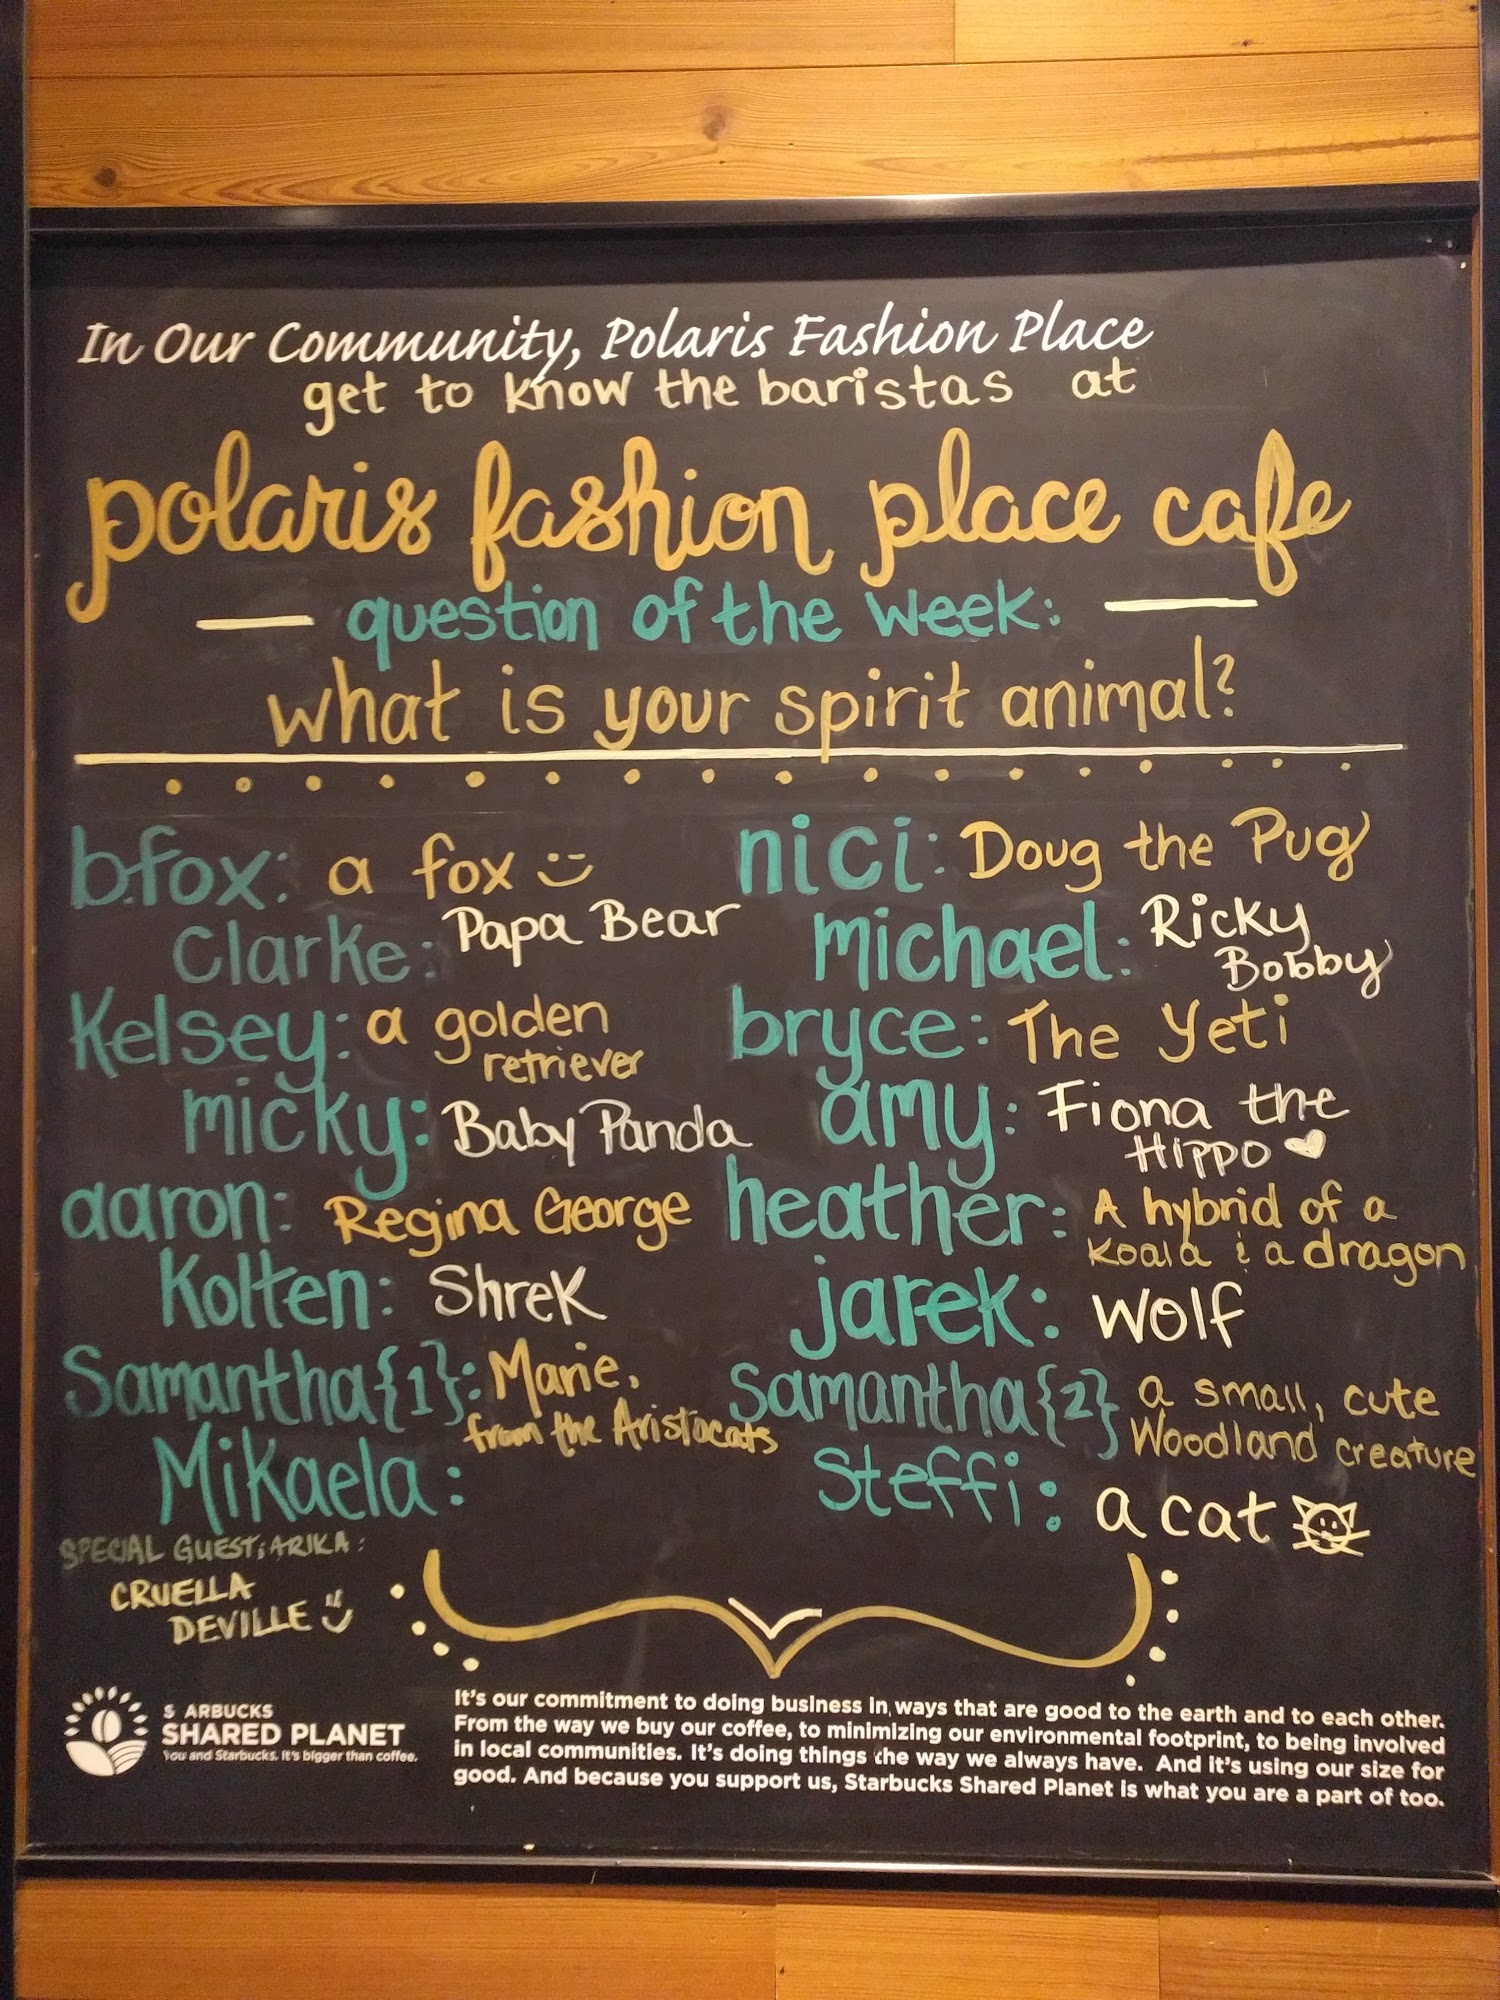 In Our Community, Polaris Fashion Place
get to know the baristas at
polaris fashion place cafe
question of the week:
what is your spirit animal?
b.fox: a fox
Clarke: Papa Bear
Kelsey: a golden
retriever
micky: Baby Panda
aaron: Regina George
Kolten: Shrek
Samantha{1}: Marie,
from the Aristocats
Mikaela:
SPECIAL GUEST: ARIKA:
CRUELLA
DEVILLE
nici: Doug the Pug
michael: Ricky
Bobby
bryce: The Yeti
amy: Fiona the
Hippo
heather: A hybrid of a
koala & a dragon
jarek: Wolf
Samantha{2} a small, cute
Woodland creature
Steffi: a cat
S ARBUCKS
SHARED PLANET
You and Starbucks. It's bigger than coffee.
It's our commitment to doing business in ways that are good to the earth and to each other.
From the way we buy our coffee, to minimizing our environmental footprint, to being involved
in local communities. It's doing things the way we always have. And it's using our size for
good. And because you support us, Starbucks Shared Planet is what you are a part of too.